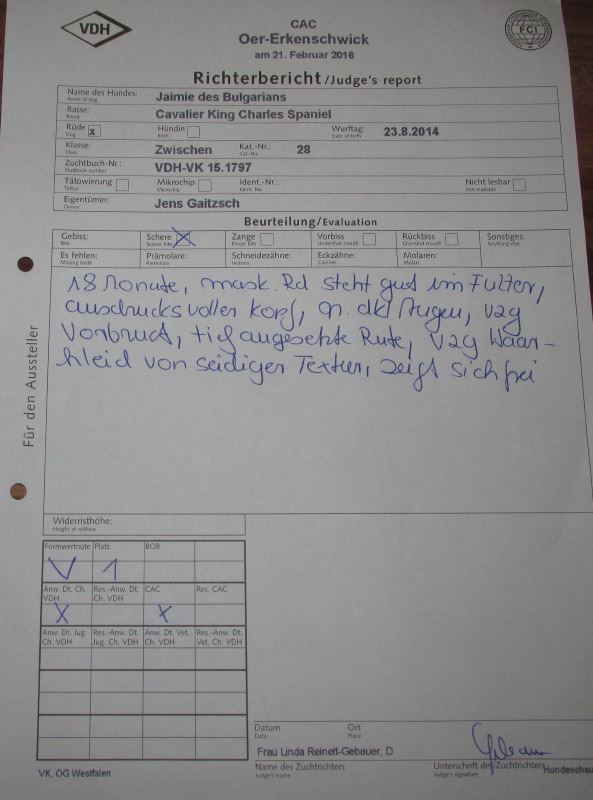 VDH
CAC
Oer-Erkenschwick
am 21. Februar 2016
FCI
Richterbericht /Judge's report
Name des Hundes: Jaimie des Bulgarians
Name of dog
Rasse: Cavalier King Charles Spaniel
Breed
Rüde x Hündin Wurftag: 23.8.2014
Dog Bitch Date of birth
Klasse: Zwischen Kat.-Nr.: 28
Class Cat. No.
Zuchtbuch-Nr.: VDH-VK 15.1797
Studbook number
Tätowierung Mikrochip Ident.-Nr.: Nicht lesbar
Tattoo Microchip Ident. No. Not readable
Eigentümer: Jens Gaitzsch
Owner
Beurteilung/Evaluation
Gebiss: Schere X Zange Vorbiss Rückbiss Sonstiges:
Bite Scissor bite Pincer bite Undershot mouth Overshot mouth Anything else
Es fehlen: Prämolare: Schneidezähne: Eckzähne: Molaren:
Missing teeth Premolars Incisors Canines Molars
18 Monate, mask. Rd steht gut im Futter,
ausdrucksvoller Kopf, gr. dkl Augen, vzg
Vorbrust, tief angesetzte Rute, vzg Haar-
kleid von seidiger Textur, zeigt sich frei
Für den Aussteller
Widerristhöhe:
Height at withers
Formwertnote Platz BOB
V 1
Anw. Dt. Ch. VDH Res.-Anw. Dt. Ch. VDH CAC Res. CAC
X X
Anw. Dt. Jug. Ch. VDH Res.-Anw. Dt. Jug. Ch. VDH Anw. Dt. Vet. Ch. VDH Res.-Anw. Dt. Vet. Ch. VDH
Datum Ort
Date Place
Frau Linda Reinelt-Gebauer, D
Name des Zuchtrichters Unterschrift des Zuchtrichters Hundeschau
Judge's name Judge's signature
VK, OG Westfalen